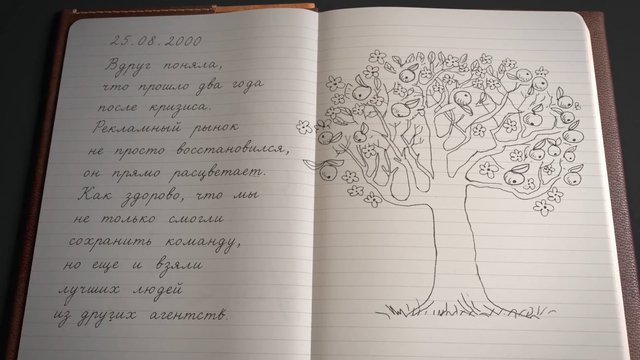 25.08.2000
Вдруг поняла,
что прошло два года
после кризиса.
Рекламный рынок
не просто восстановился,
он прямо расцветает.
Как здорово, что мы
не только смогли
сохранить команду,
но еще и взяли
лучших людей
из других агентств.